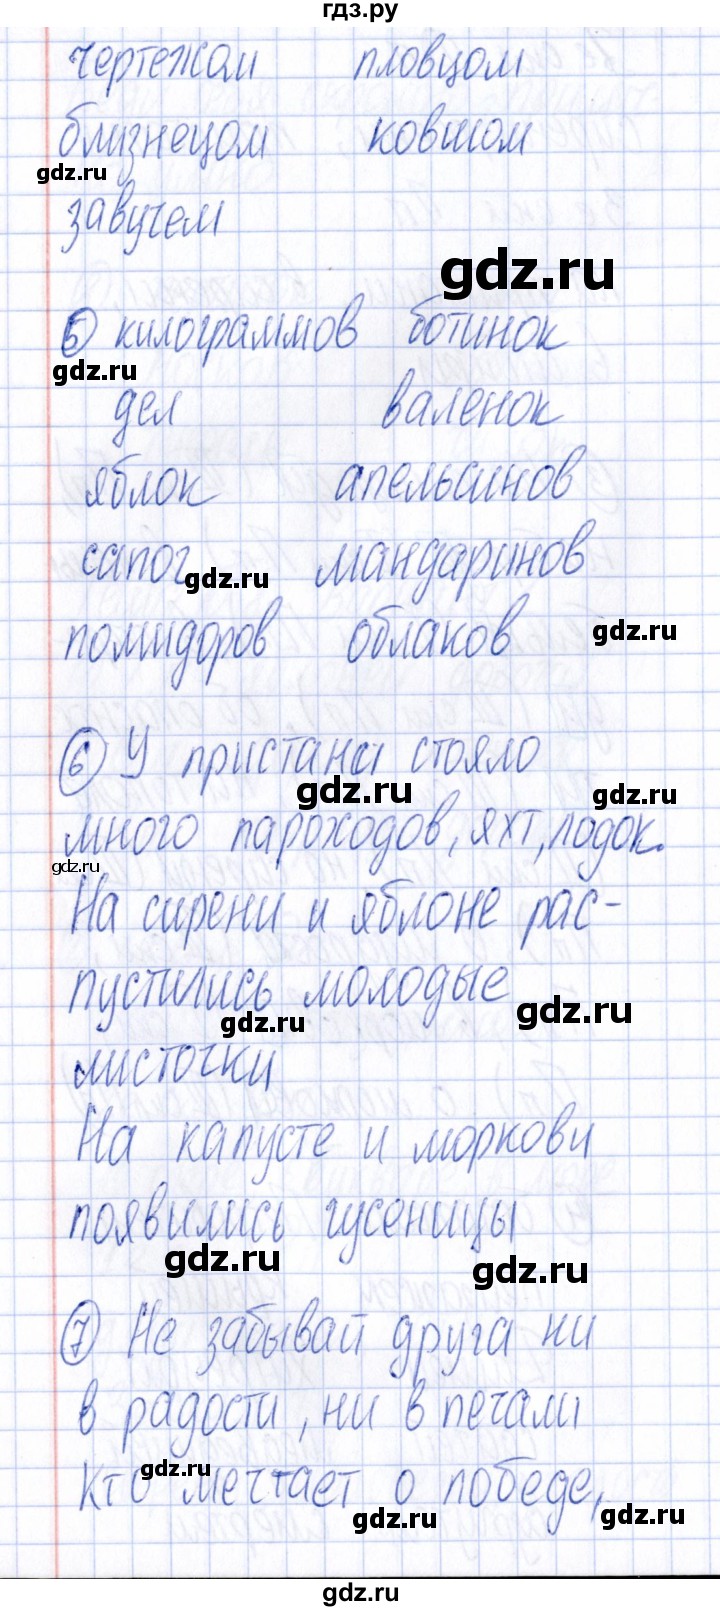 гдз.ру
чертежом пловцом
близнецом ковшом
gdz.ru
завучем
gdz.ru
5 килограммов ботинок
gdz.ru
дел валенок
яблок апельсинов
сапог мандаринов
gdz.ru
помидоров облаков
gdz.ru
6 У пристани стояло
gdz.ru gdz.ru
много пароходов, яхт, лодок.
gdz.ru
На сирени и яблоне рас-
пустились молодые
gdz.ru gdz.ru
листочки
На капусте и моркови
появились гусеницы
gdz.ru gdz.ru
7 Не забывай друга ни
в радости, ни в печали
gdz.ru
Кто мечтает о победе,
gdz.ru gdz.ru
gdz.ru